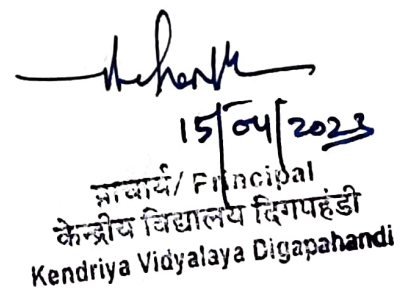 15/04/2023
प्राचार्य/ Principal
केन्द्रीय विद्यालय दिगपहंडी
Kendriya Vidyalaya Digapahandi